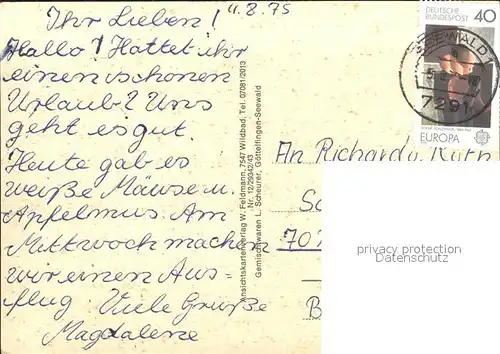 4.8.75
Ihr Lieben!
Hallo! Hattet ihr
einen schönen
Urlaub? Uns
geht es gut.
Heute gab es
weiße Mäuse u.
Apfelmus. Am
Mittwoch machen
wir einen Aus-
flug. Viele Grüße
Magdalene
Ansichtskartenverlag W. Feldmann, 7547 Wildbad, Tel. 07081/2013
Nr. 12/29942/43
Gemischtwaren L. Scheurer, Göttelfingen-Seewald
DEUTSCHE
BUNDESPOST 40
EUROPA
SEEWALD
7291
An Richard u. Ruth
privacy protection
Datenschutz